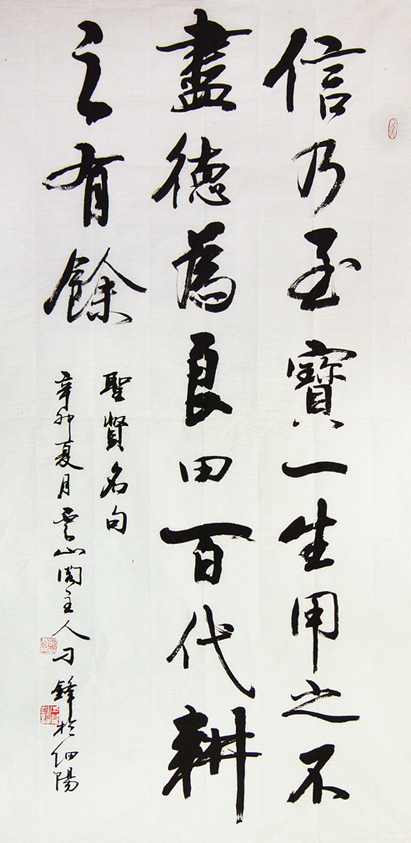 信乃至寶一生用之不
盡德為良田百代耕
之有餘
聖賢名句
辛卯夏月雲山閣主人刁鋒於細陽